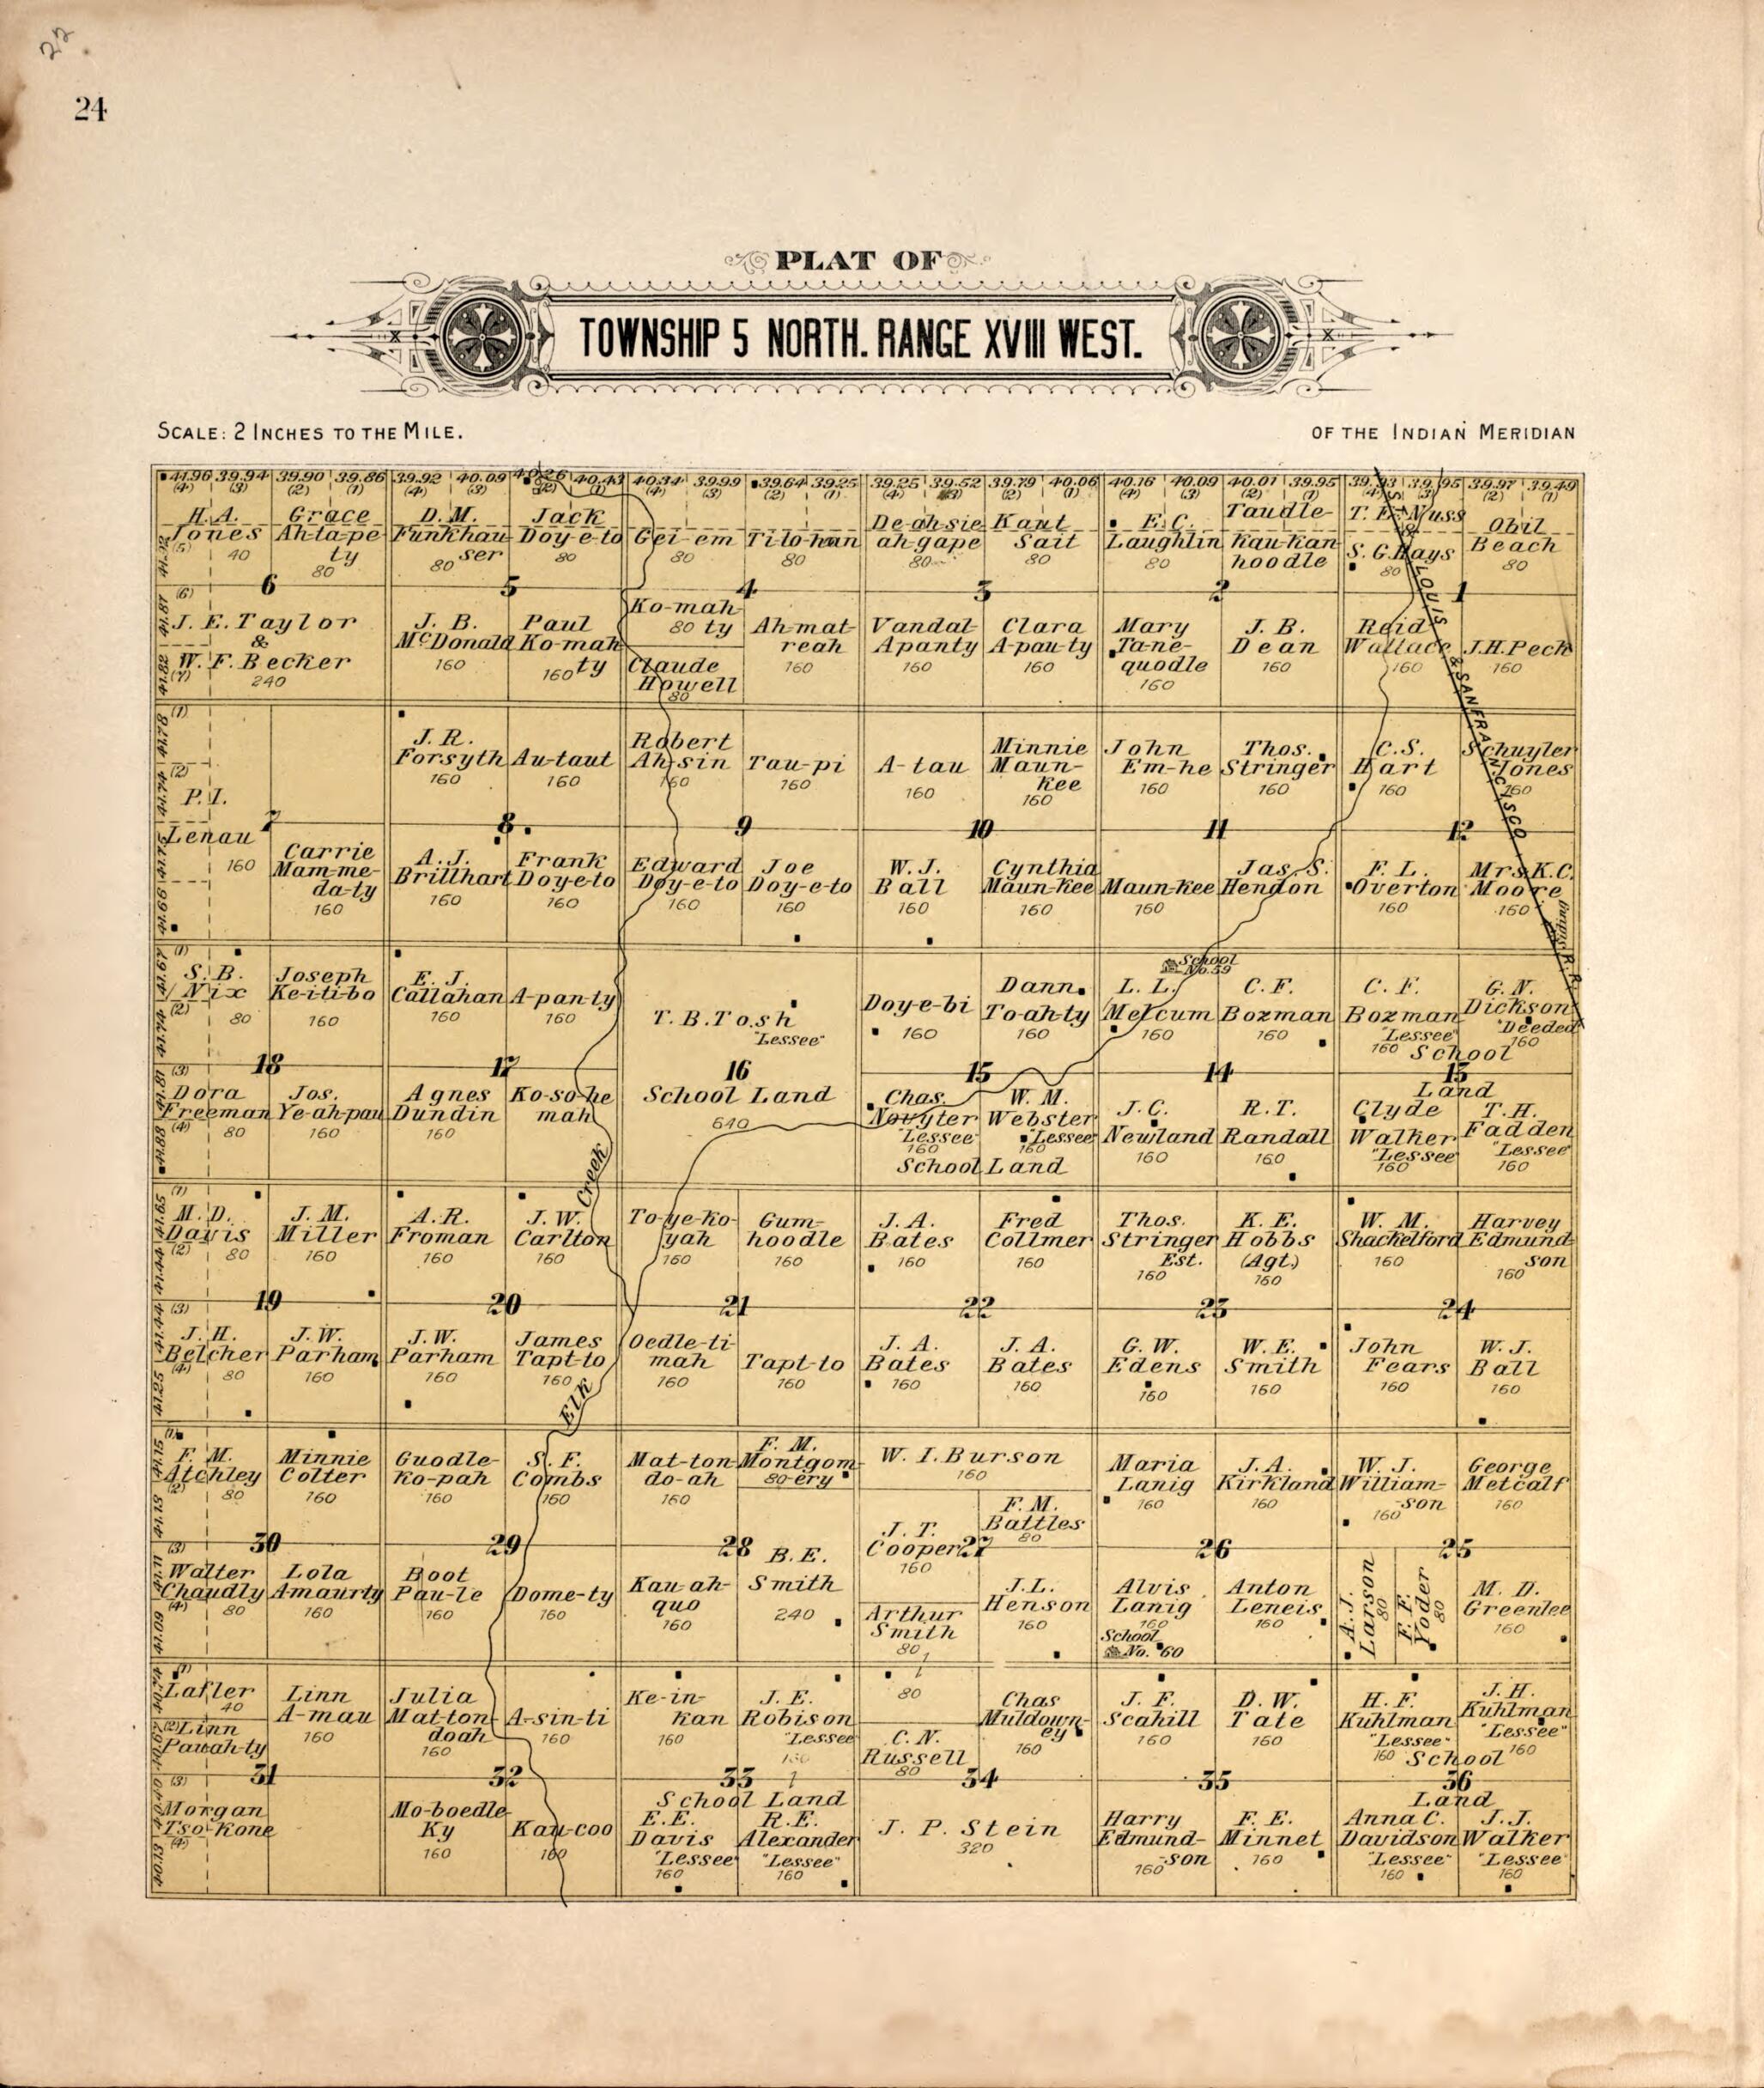 22
24
PLAT OF
TOWNSHIP 5 NORTH. RANGE XVIII WEST.
SCALE: 2 INCHES TO THE MILE.
OF THE INDIAN MERIDIAN
41.96 39.94 39.90 39.86 39.92 40.09 40.26 40.43 40.34 39.99 39.64 39.25 39.25 39.52 39.79 40.06 40.16 40.09 40.01 39.95 39.93 39.95 39.97 39.49
(4) (3) (2) (1) (4) (3) (2) (1) (4) (3) (2) (1) (4) (3) (2) (1) (4) (3) (2) (1) (4) (3) (2) (1)
H. A.
Jones
(5) 40
Grace
Ah-ta-pe
ty
80
D. M.
Funkhau
ser
80
Jack
Doy-e-to
80
Gei-em
80
Ti-to-han
80
De-ah-sie
ah-gape
80
Kant
Sait
80
E. C.
Laughlin
80
Taudle-
Kau-kan
hoodle
T. E. Nuss
S. G. Hays
80
Obil
Beach
80
6 5 4 3 2 1
(6)
41.87
J. E. Taylor
&
W. F. Becker
240
41.82
(7)
J. B.
McDonald
160
Paul
Ko-mah
ty
160
Ko-mah
80 ty
Claude
Howell
80
Ah-mat
reah
160
Vandal
Apanty
160
Clara
A-pau-ty
160
Mary
Ta-ne-
quodle
160
J. B.
Dean
160
Reid
Wallace
160
J. H. Peck
160
ST. LOUIS & SAN FRANCISCO
R. R.
(1)
41.78
(2)
41.74
P. I.
Lenau
160
41.66
J. R.
Forsyth
160
Au-taut
160
Robert
Ah-sin
160
Tau-pi
160
A-tau
160
Minnie
Maun-
kee
160
John
Em-he
160
Thos.
Stringer
160
C. S.
Hart
160
Schuyler
Jones
160
7 8 9 10 11 12
Carrie
Mam-me-
da-ty
160
A. J.
Brillhart
160
Frank
Doy-e-to
160
Edward
Doy-e-to
160
Joe
Doy-e-to
160
W. J.
Ball
160
Cynthia
Maun-kee
160
Maun-kee
160
Jas. S.
Hendon
F. L.
Overton
160
Mrs. K. C.
Moore
160
(1)
41.67
S. B.
Nix
(2)
80
41.74
Joseph
Ke-i-ti-bo
160
E. J.
Callahan
160
A-pan-ty
160
T. B. Tosh
"Lessee"
Doy-e-bi
160
Dann.
To-ah-ty
160
School
No. 59
L. L.
Melcum
160
C. F.
Bozman
160
C. F.
Bozman
"Lessee"
160
G. N.
Dickson
"Deeded"
160
School
Land
18 17 16 15 14 13
(3)
41.81
Dora
Freeman
(4)
80
41.88
Jos.
Ye-ah-pau
160
Agnes
Dundin
160
Ko-so-he
mah
School Land
640
Chas.
Novyter
"Lessee"
160
W. M.
Webster
"Lessee"
160
School Land
J. C.
Newland
160
R. T.
Randall
160
Clyde
Walker
"Lessee"
160
T. H.
Fadden
"Lessee"
160
Creek
(1)
41.65
M. D.
Davis
(2)
80
41.44
J. M.
Miller
160
A. R.
Froman
160
J. W.
Carlton
160
To-ye-ko-
yah
160
Gum-
hoodle
160
J. A.
Bates
160
Fred
Collmer
160
Thos.
Stringer
Est.
160
K. E.
Hobbs
(Agt.)
160
W. M.
Shackelford
160
Harvey
Edmund
son
160
19 20 21 22 23 24
(3)
41.44
J. H.
Belcher
(4)
80
41.25
J. W.
Parham
160
J. W.
Parham
160
James
Tapt-to
160
Elk
Oedle-ti-
mah
160
Tapt-to
160
J. A.
Bates
160
J. A.
Bates
160
G. W.
Edens
160
W. E.
Smith
160
John
Fears
160
W. J.
Ball
160
(1)
41.15
F. M.
Atchley
(2)
80
41.13
Minnie
Colter
160
Guodle-
Ko-pah
160
S. F.
Combs
160
Mat-ton-
do-ah
160
F. M.
Montgom-
80 ery
W. I. Burson
160
F. M.
Battles
80
Maria
Lanig
160
J. A.
Kirkland
160
W. J.
William-
son
160
George
Metcalf
160
30 29 28 27 26 25
(3)
41.11
Walter
Chaudly
(4)
80
41.09
Lola
Amaurty
160
Boot
Pau-le
160
Dome-ty
160
Kau-ah-
quo
160
B. E.
Smith
240
J. T.
Cooper
160
Arthur
Smith
80
J. L.
Henson
160
Alvis
Lanig
160
School
No. 60
Anton
Leneis
160
A. J.
Larson
80
F. F.
Yoder
80
M. D.
Greenlee
160
(1)
Lafler
40
(2) Linn
Pauah-ty
Linn
A-mau
160
Julia
Mat-ton-
doah
160
A-sin-ti
160
Ke-in-
kan
160
J. E.
Robison
"Lessee
160
80
C. N.
Russell
80
Chas
Muldown-
ey
160
J. F.
Scahill
160
D. W.
Tate
160
H. F.
Kuhlman
"Lessee"
160
J. H.
Kuhlman
"Lessee"
160
School
Land
31 32 33 34 35 36
(3)
Morgan
Tso-Kone
(4)
40.13
Mo-boedle-
Ky
160
Kau-coo
160
School Land
E. E.
Davis
"Lessee"
160
R. E.
Alexander
"Lessee"
160
J. P. Stein
320
Harry
Edmund-
son
160
F. E.
Minnet
160
Anna C.
Davidson
"Lessee"
160
J. J.
Walker
"Lessee"
160